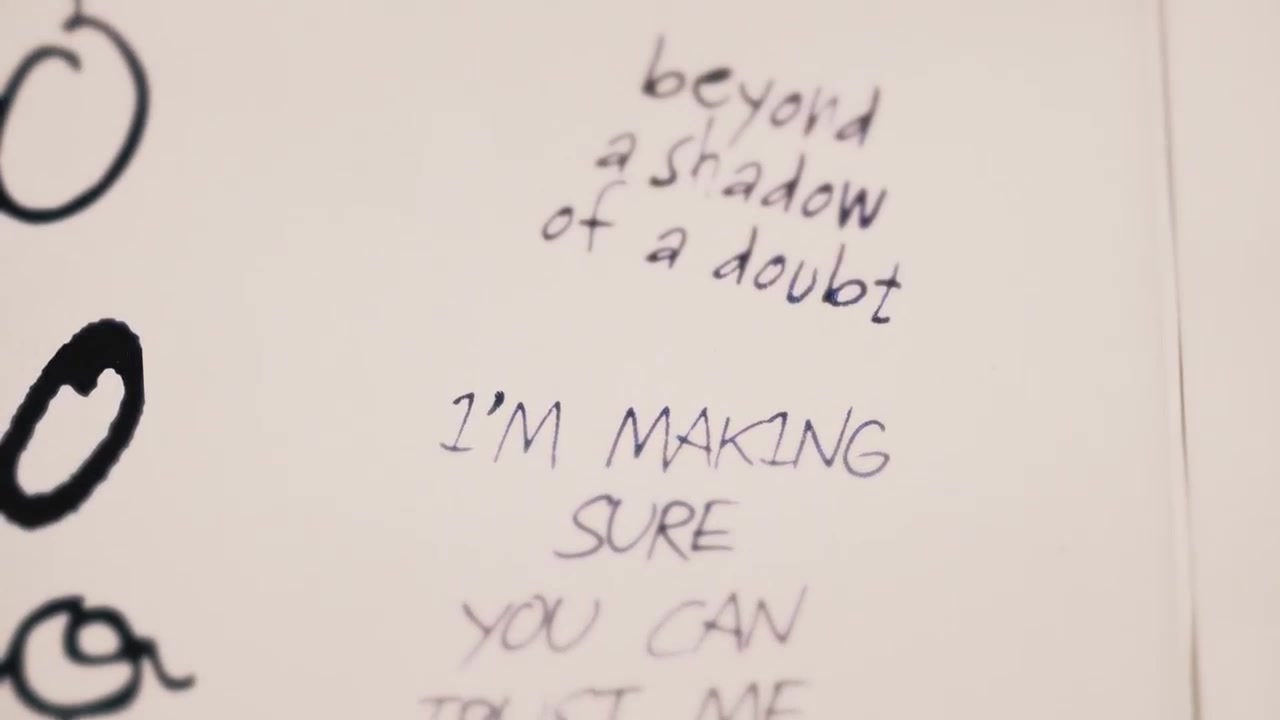 beyond
a shadow
of a doubt
I'M MAKING
SURE
YOU CAN
TRUST ME